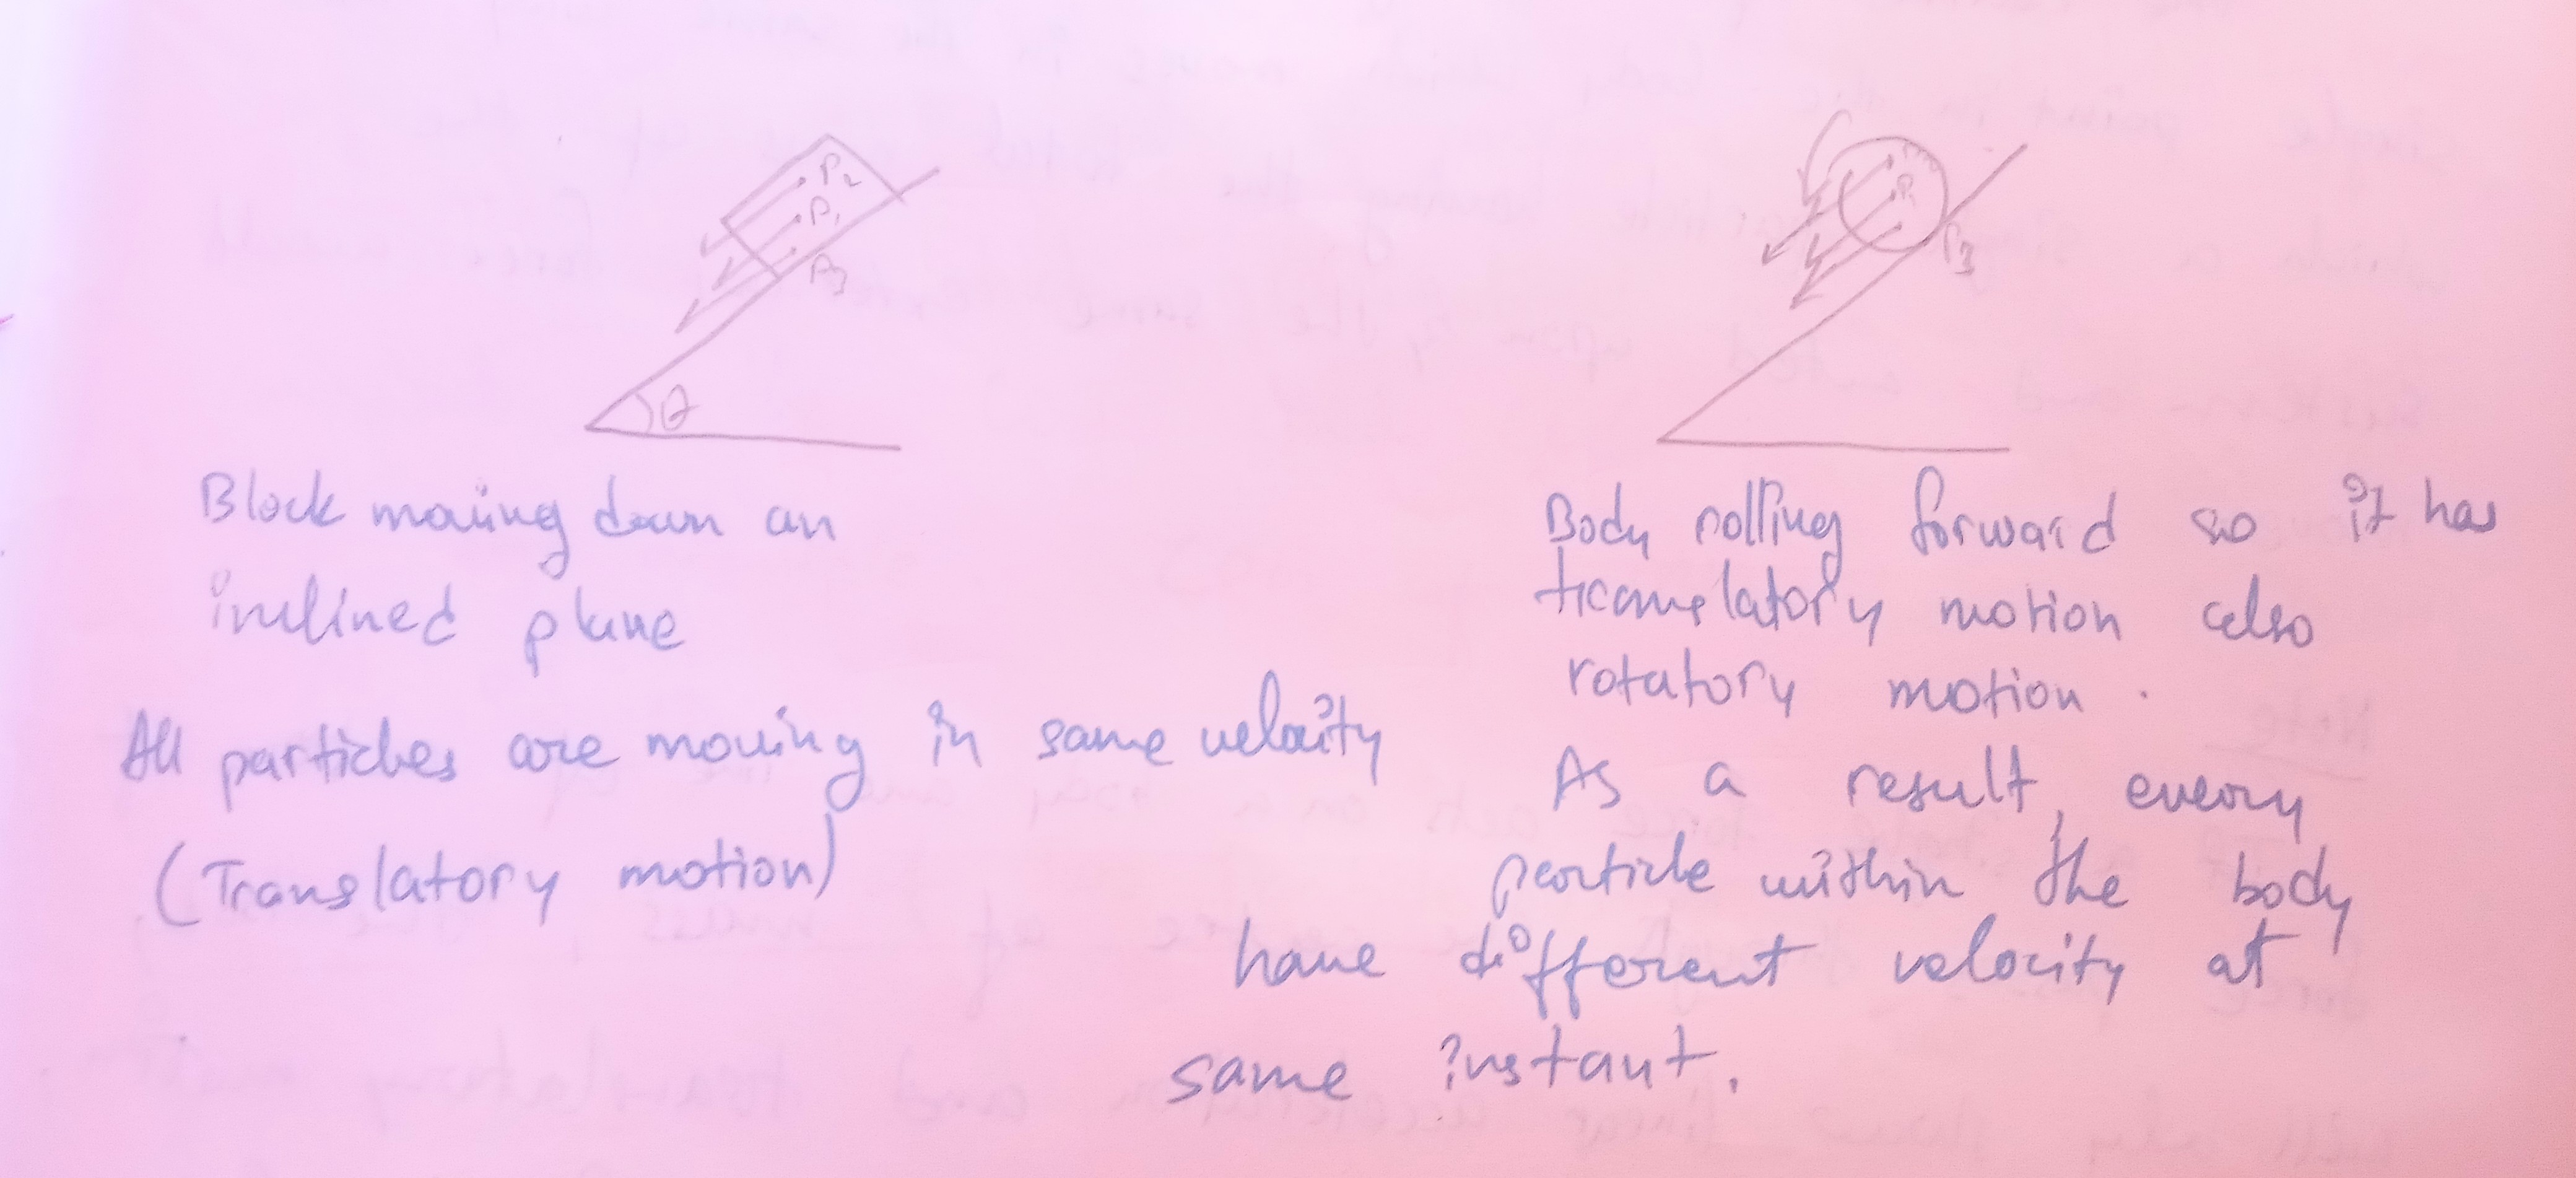 P2
P1
P3
θ
P1
P3
Block moving down an
inclined plane
All particles are moving in same velocity
(Translatory motion)
Body rolling forward so it has
translatory motion also
rotatory motion.
As a result, every
particle within the body
have different velocity at
same instant.